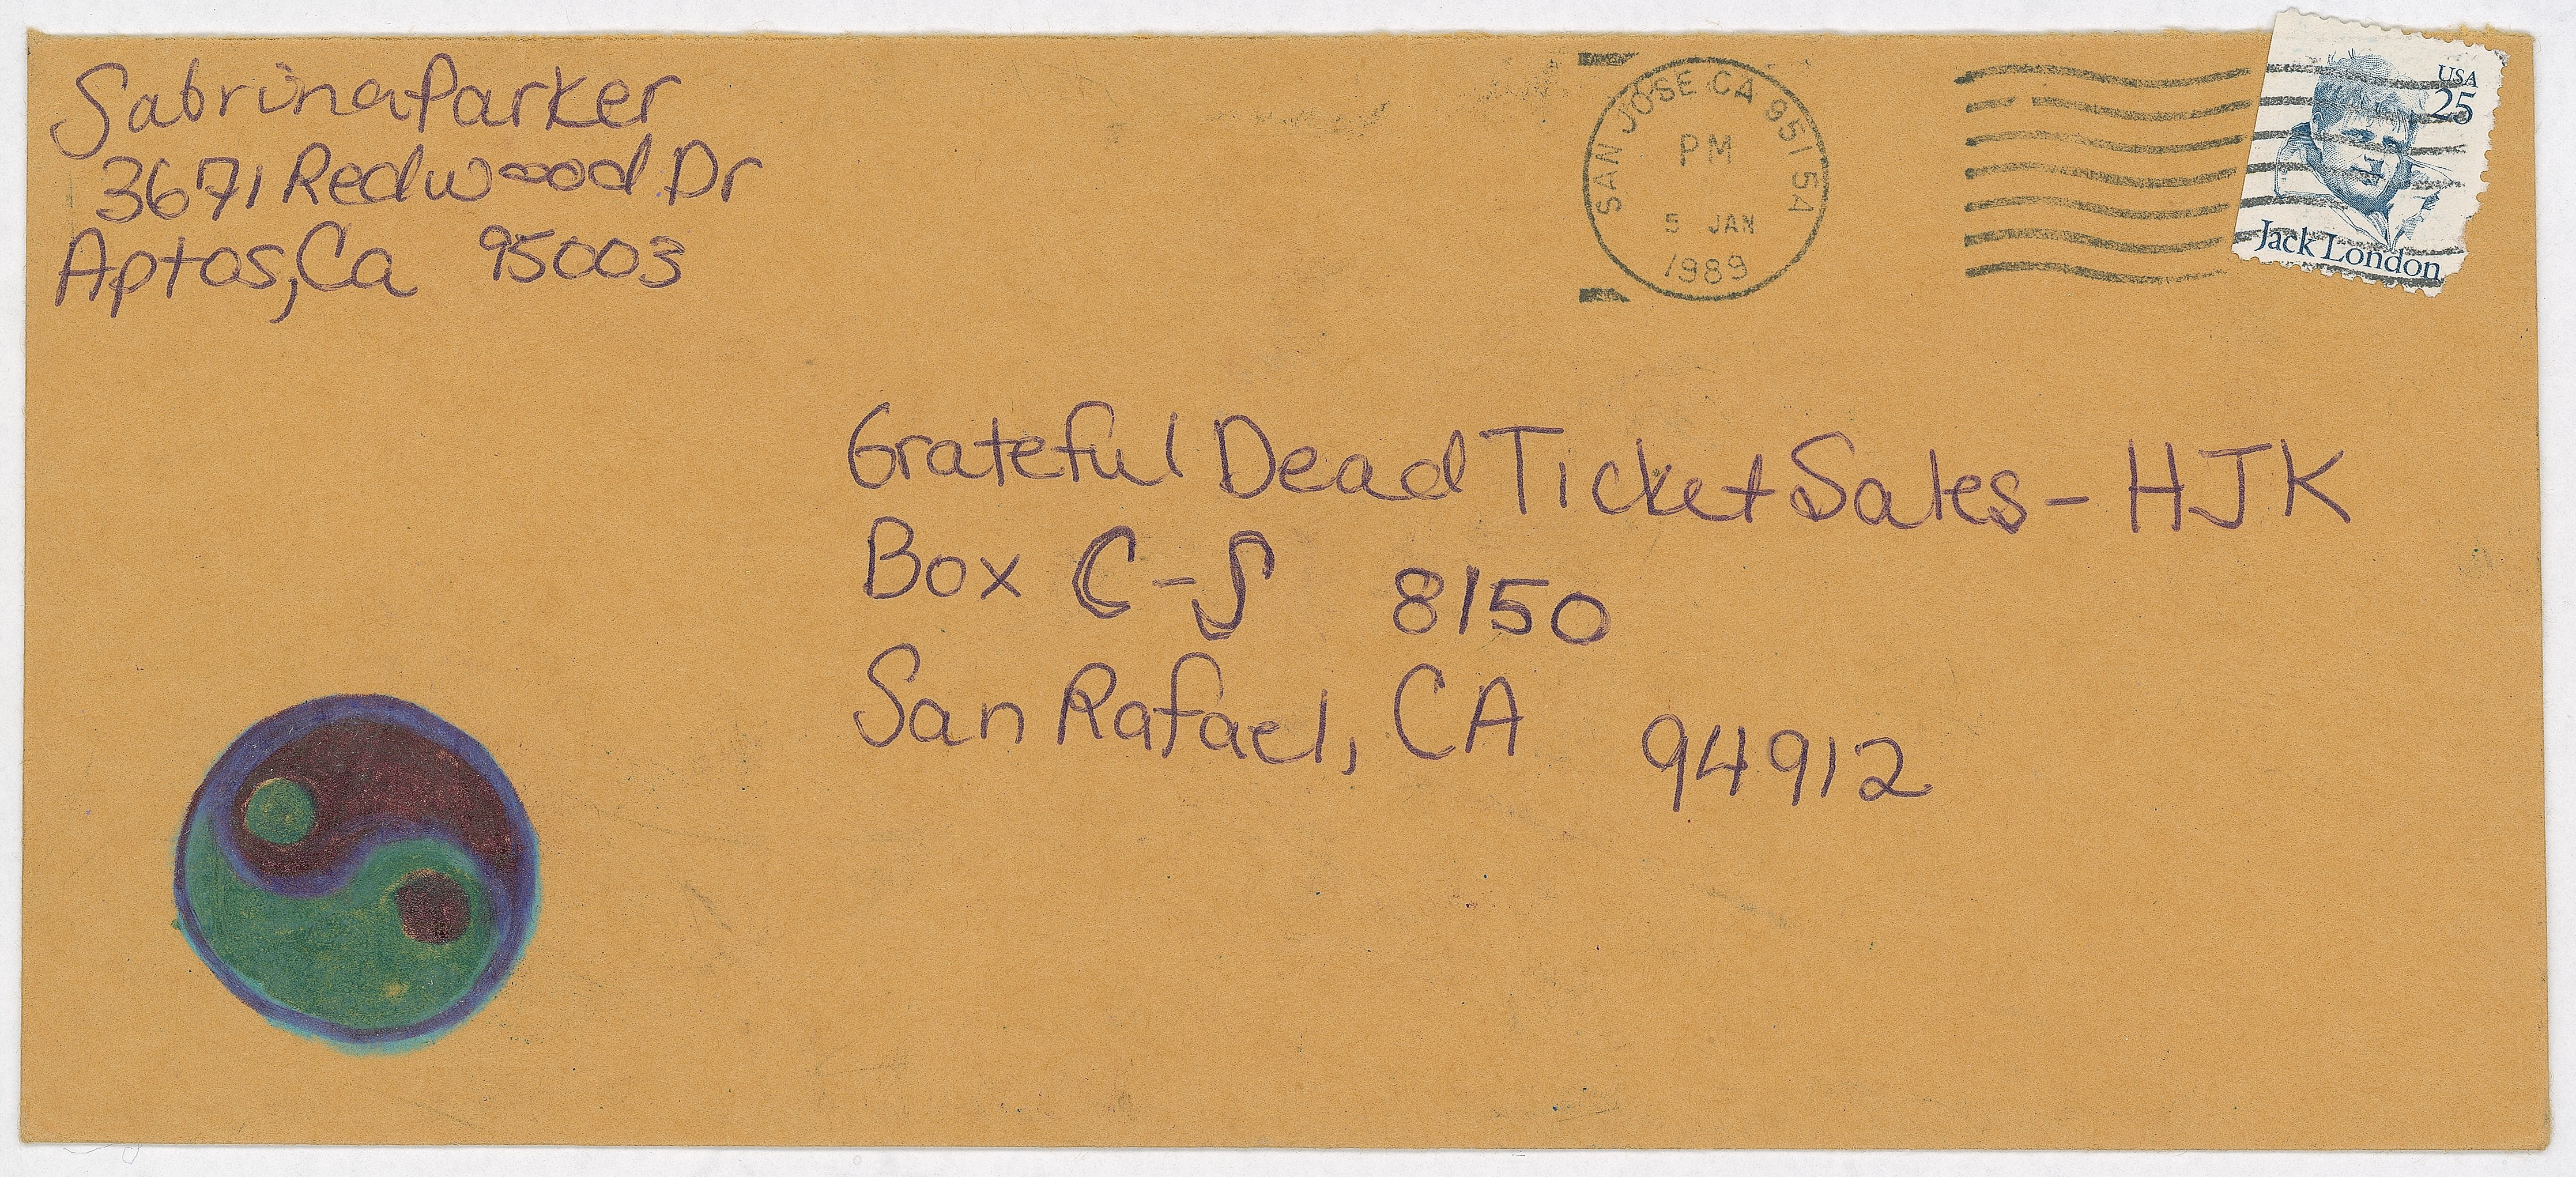 Sabrina Parker
3671 Redwood Dr
Aptos, Ca 95003
SAN JOSE CA 951 5A
PM
5 JAN
1989
USA
25
Jack London
Grateful Dead Ticket Sales - HJK
Box C-S 8150
San Rafael, CA 94912